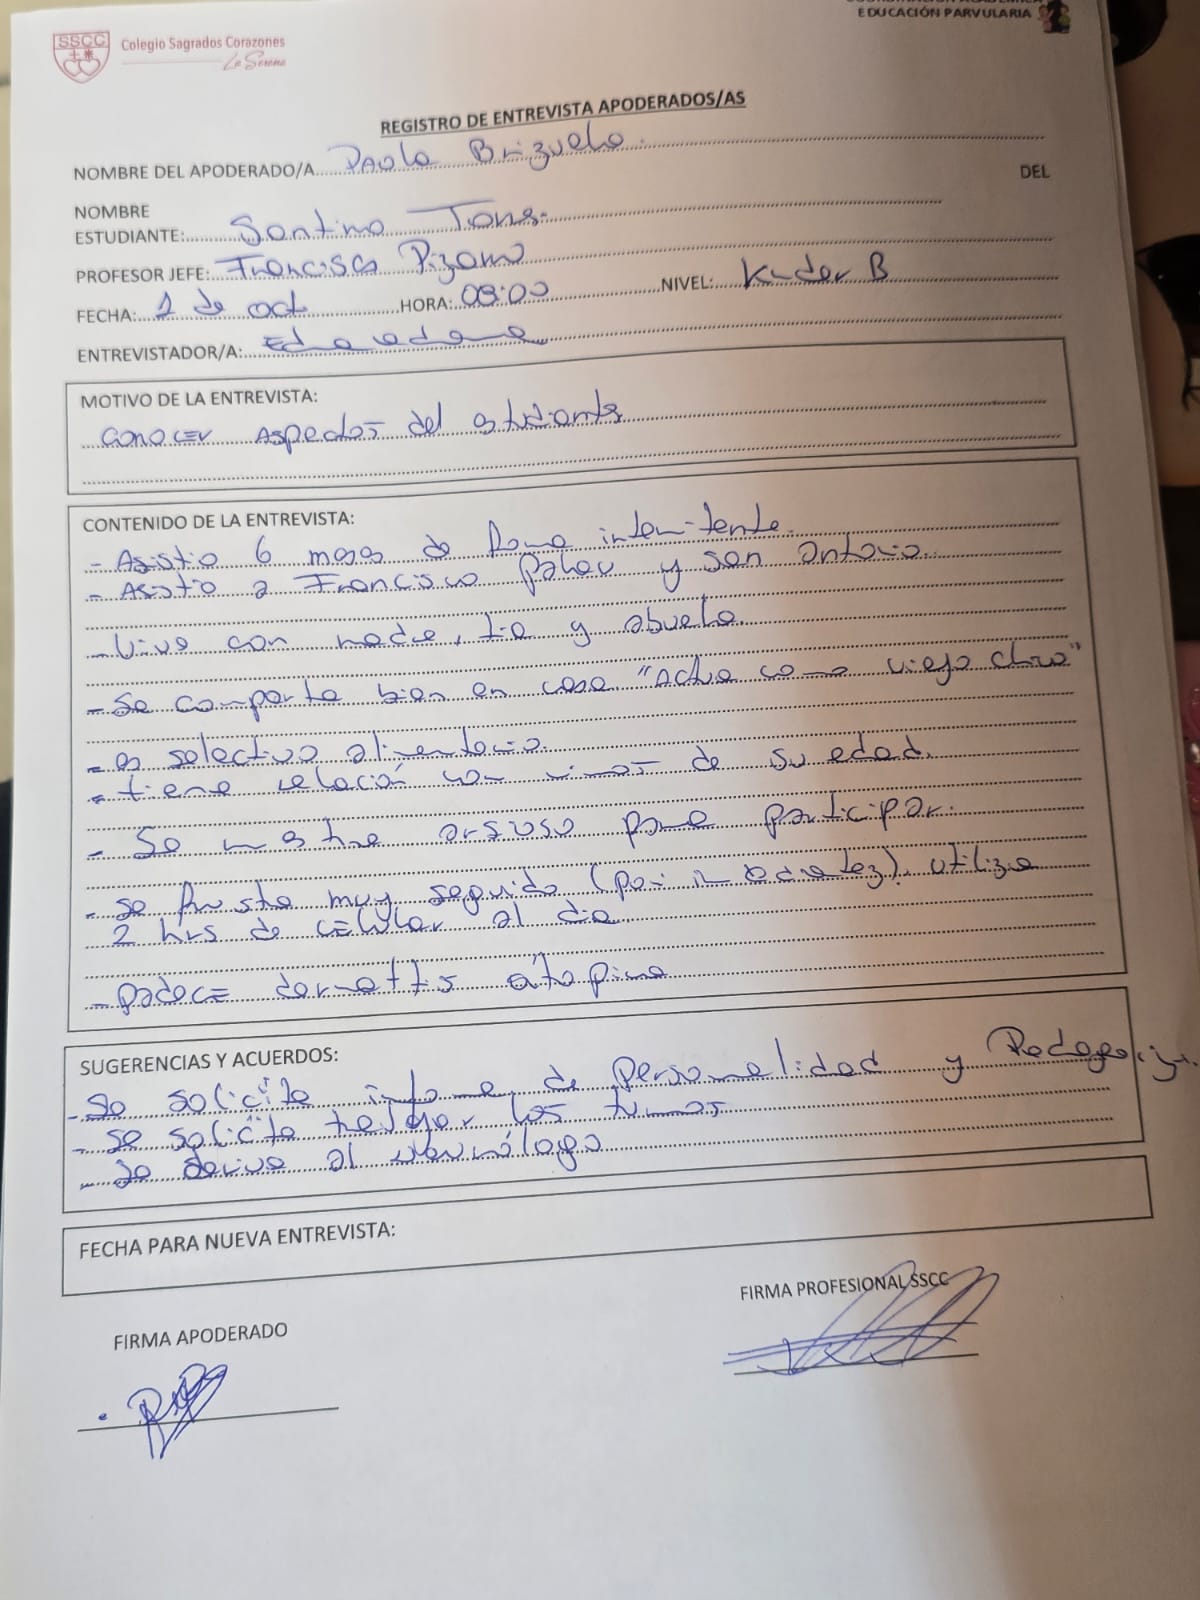 SSCC
Colegio Sagrados Corazones
La Serena
EDUCACIÓN PARVULARIA
REGISTRO DE ENTREVISTA APODERADOS/AS
NOMBRE DEL APODERADO/A Paola Brizuela
NOMBRE DEL
ESTUDIANTE: Santino
PROFESOR JEFE: Francisca Pizarro
FECHA: 1 de oct HORA: 08:00 NIVEL: Kinder B
ENTREVISTADOR/A: Educadora
MOTIVO DE LA ENTREVISTA:
conocer aspectos del estudiante
CONTENIDO DE LA ENTREVISTA:
- Asistio 6 meses de forma intermitente.
- Asistio a Francisco Palau y san antonio.
- Vive con madre, tia y abuela.
- Se comporta bien en casa "Actua como viejo chico"
- es selectivo alimentario.
- tiene relación con niños de su edad.
- Se muestra ansioso para participar.
- se frusta muy seguido (por inmadurez). utiliza
2 hrs de celular al dia
- padece dermatitis atopica
SUGERENCIAS Y ACUERDOS:
- Se solicita informe de personalidad y Pedagogico
- se solicita los turnos
- Se deriva al
FECHA PARA NUEVA ENTREVISTA:
FIRMA PROFESIONAL SSCC
FIRMA APODERADO